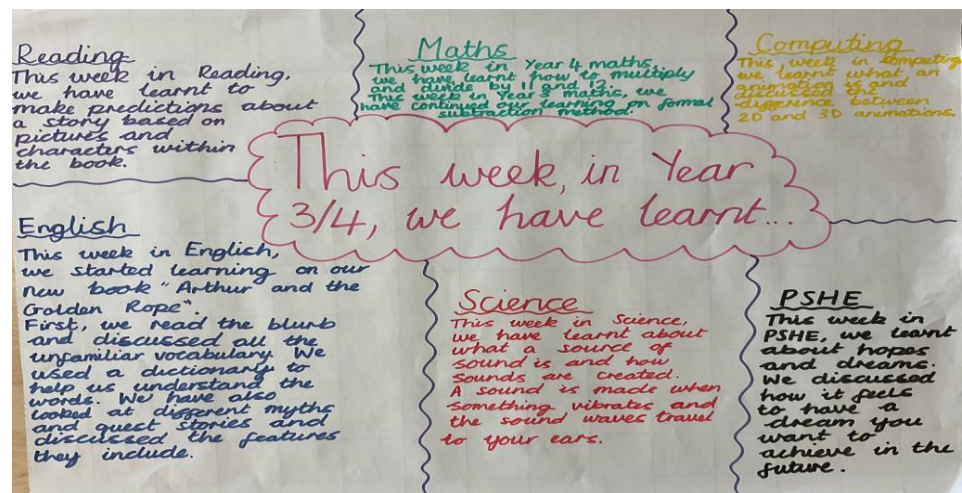 Reading
This week in Reading,
we have learnt to
make predictions about
a story based on
pictures and
characters within
the book.
Maths
This week in Year 4 maths
we have learnt how to multiply
and divide by 11 and 12.
This week in Year 3 maths, we
have continued our learning on formal
subtraction method.
Computing
This week in computing
we learnt what an
animation is and
the
difference between
2D and 3D animations.
This week, in Year
3/4, we have learnt...
English
This week in English,
we started learning on our
new book "Arthur and the
Golden Rope".
First, we read the blurb
and discussed all the
unfamiliar vocabulary. We
used a dictionary to
help us understand the
words. We have also
looked at different myths
and quest stories and
discussed the features
they include.
Science
This week in Science,
we have learnt about
what a source of
sound is and how
sounds are created.
A sound is made when
something vibrates and
the sound waves travel
to your ears.
PSHE
This week in
PSHE, we learnt
about hopes
and dreams.
We discussed
how it feels
to have a
dream you
want to
achieve in the
future.